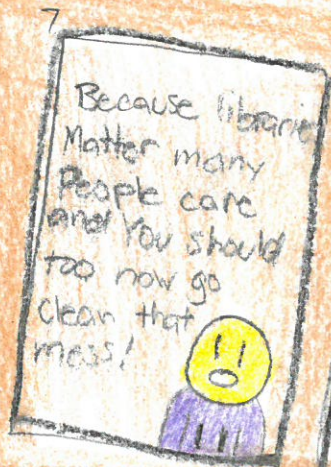 7
Because librarie
Matter many
People care
and You should
too now go
clean that
mess!